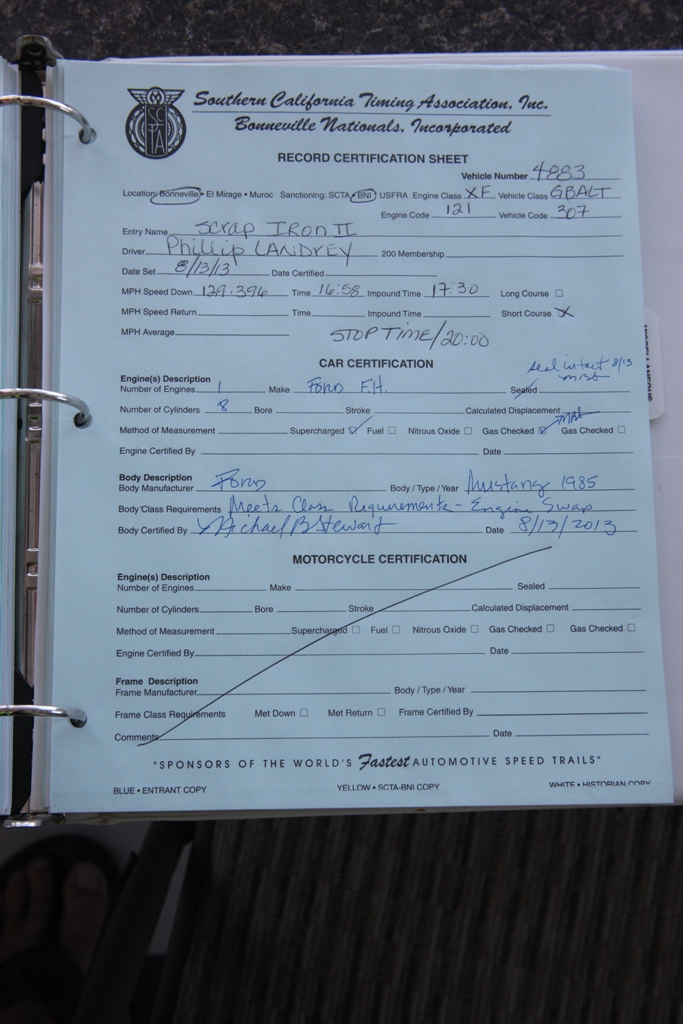 SCTA
Southern California Timing Association, Inc.
Bonneville Nationals, Incorporated
RECORD CERTIFICATION SHEET
Vehicle Number 4883
Location: Bonneville • El Mirage • Muroc Sanctioning: SCTA BNI USFRA Engine Class XF Vehicle Class GBALT
Engine Code 121 Vehicle Code 307
Entry Name Scrap IRON II
Driver Phillip LANDREY 200 Membership
Date Set 8/13/13 Date Certified
MPH Speed Down 129.396 Time 16:58 Impound Time 17:30 Long Course
MPH Speed Return Time Impound Time Short Course X
MPH Average STOP TIME/20:00
CAR CERTIFICATION
seal intact 8/13
Engine(s) Description
Number of Engines 1 Make Ford F.H. Sealed
Number of Cylinders 8 Bore Stroke Calculated Displacement
Method of Measurement Supercharged Fuel Nitrous Oxide Gas Checked Gas Checked
Engine Certified By Date
Body Description
Body Manufacturer Ford Body / Type / Year Mustang 1985
Body Class Requirements Meets Class Requirements - Engine Swap
Body Certified By Michael B Stewart Date 8/13/2013
MOTORCYCLE CERTIFICATION
Engine(s) Description
Number of Engines Make Sealed
Number of Cylinders Bore Stroke Calculated Displacement
Method of Measurement Supercharged Fuel Nitrous Oxide Gas Checked Gas Checked
Engine Certified By Date
Frame Description
Frame Manufacturer Body / Type / Year
Frame Class Requirements Met Down Met Return Frame Certified By
Comments Date
"SPONSORS OF THE WORLD'S Fastest AUTOMOTIVE SPEED TRAILS"
BLUE • ENTRANT COPY YELLOW • SCTA-BNI COPY WHITE • HISTORIAN COPY